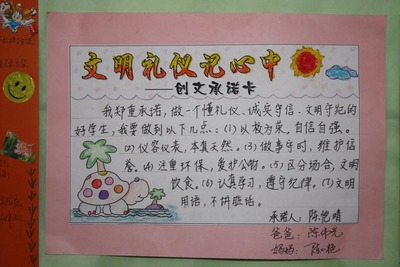 文明礼仪记心中
——创文承诺卡
我郑重承诺，做一个懂礼仪、诚实守信、文明守纪的
好学生，我要做到以下几点：(1)以校为荣，自信自强。
(2)仪容仪表，本真天然。(3)做事守时，维护信
誉。(4)注重环保，爱护公物。(5)区分场合，文明
饮食。(6)认真学习，遵守纪律。(7)文明
用语，不讲脏话。
承诺人：陈艳晴
爸爸：
妈妈：